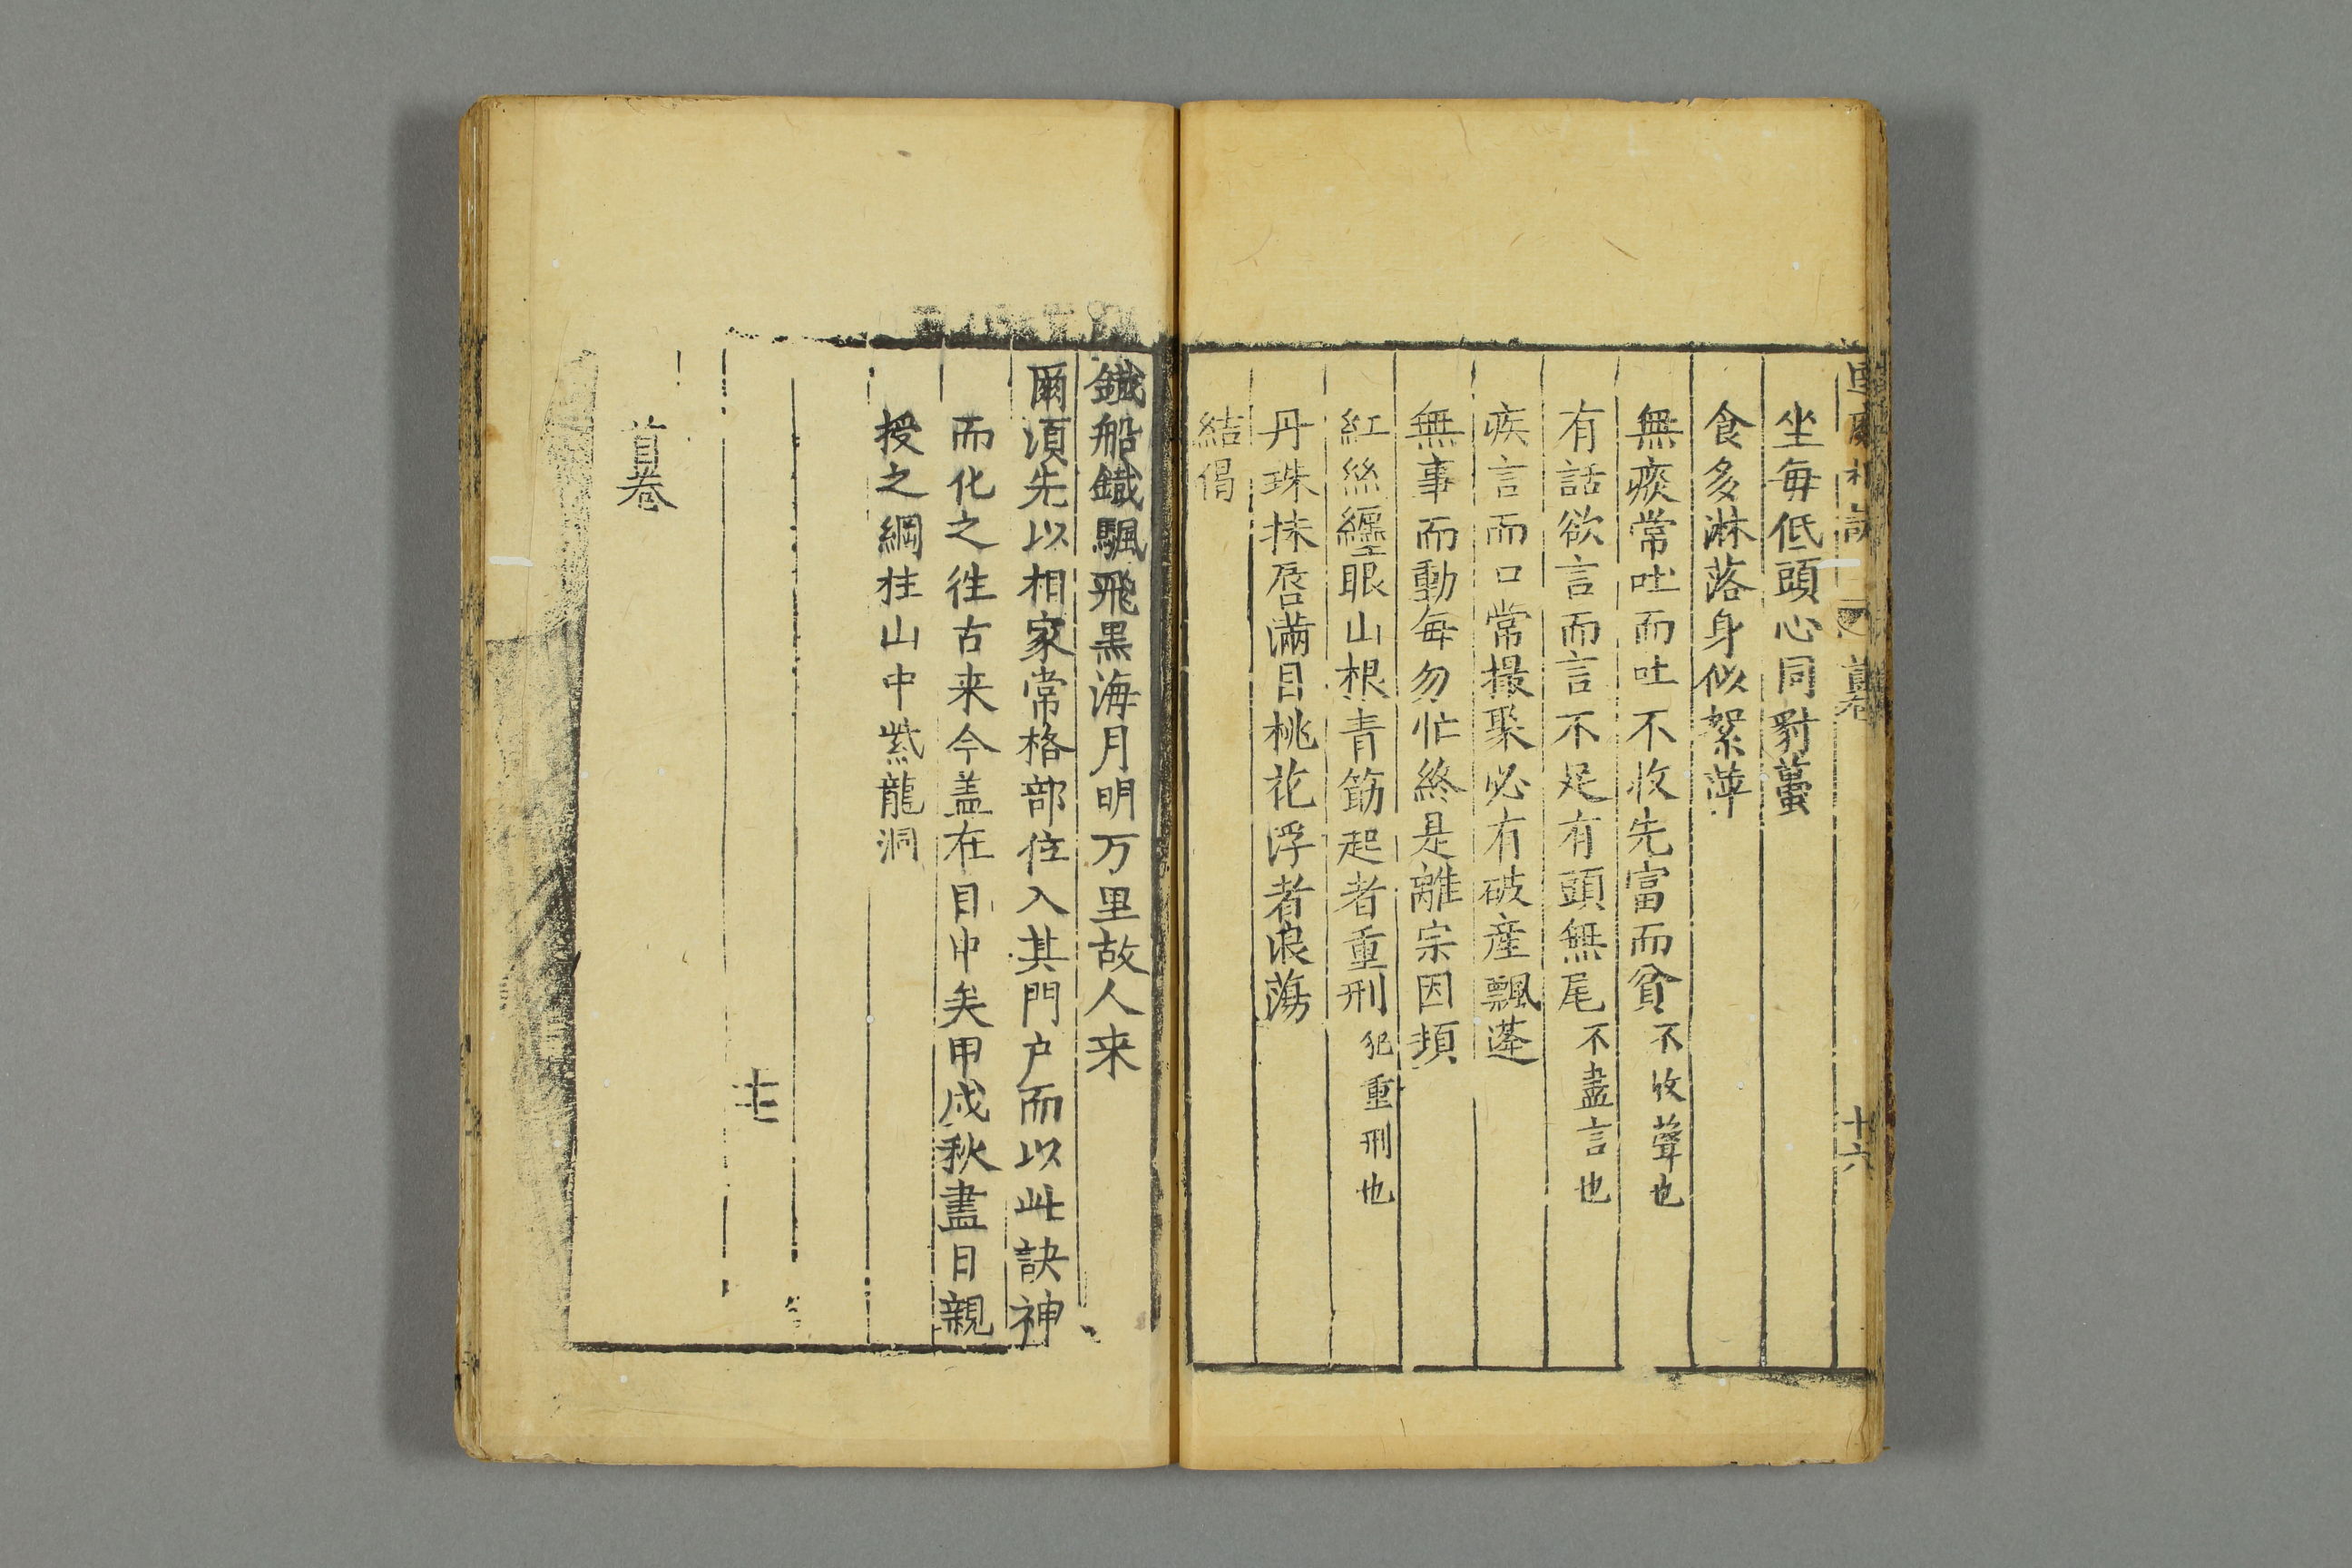 相訣 首卷 十六
坐每低頭心同豺蠆
食多淋落身似絮萍
無痰常吐而吐不收先富而貧不收聲也
有話欲言而言不足有頭無尾不盡言也
疾言而口常撮聚必有破産飄蓬
無事而動每勿忙終是離宗因損
紅絲纏眼山根青筋起者重刑犯重刑也
丹珠抹唇滿目桃花浮者浪蕩
結偈
鐵船鐵颿飛黒海月明万里故人来
爾須先以相家常格部位入其門户而以此訣神
而化之徃古来今盖在目中矣甲戌秋盡日親
授之綱柱山中紫龍洞
十七
首卷